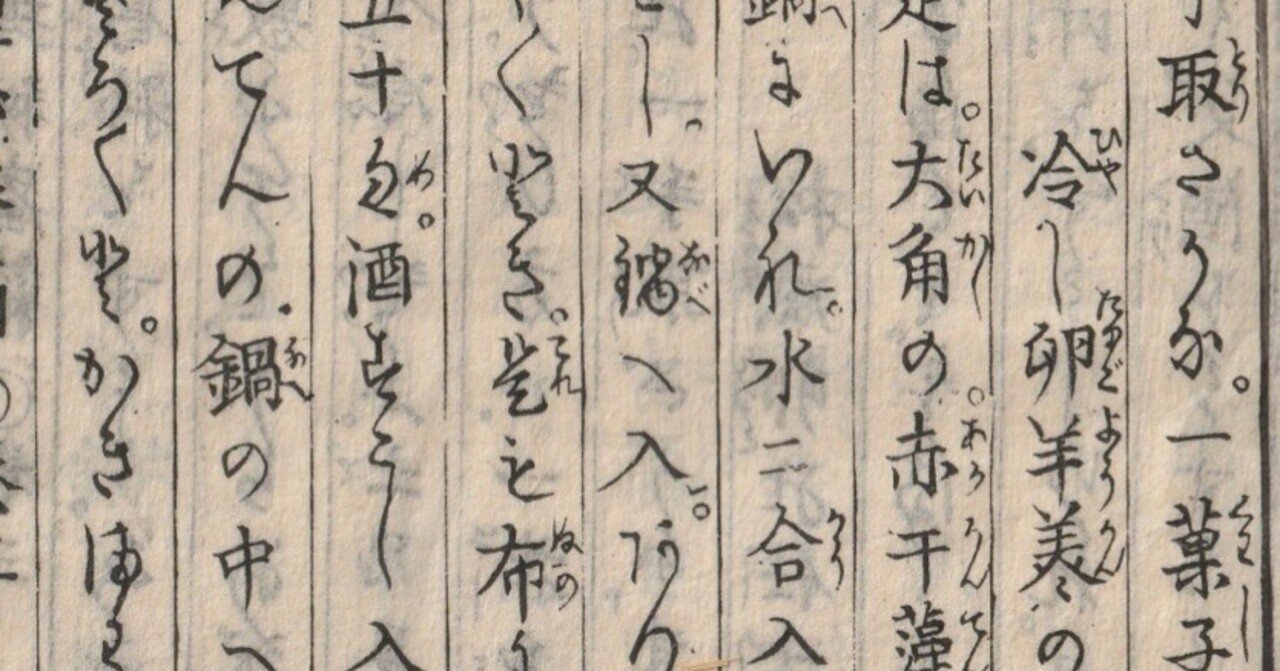 取さうな。一菓子
冷し卵羊羹の
は。大角の。赤干藻
鍋にいれ。水二合入
し。又鍋へ入。
くとき。是も布
五十匁。酒すこし入
てんの鍋の中へ
ろ〱と。かきまわ